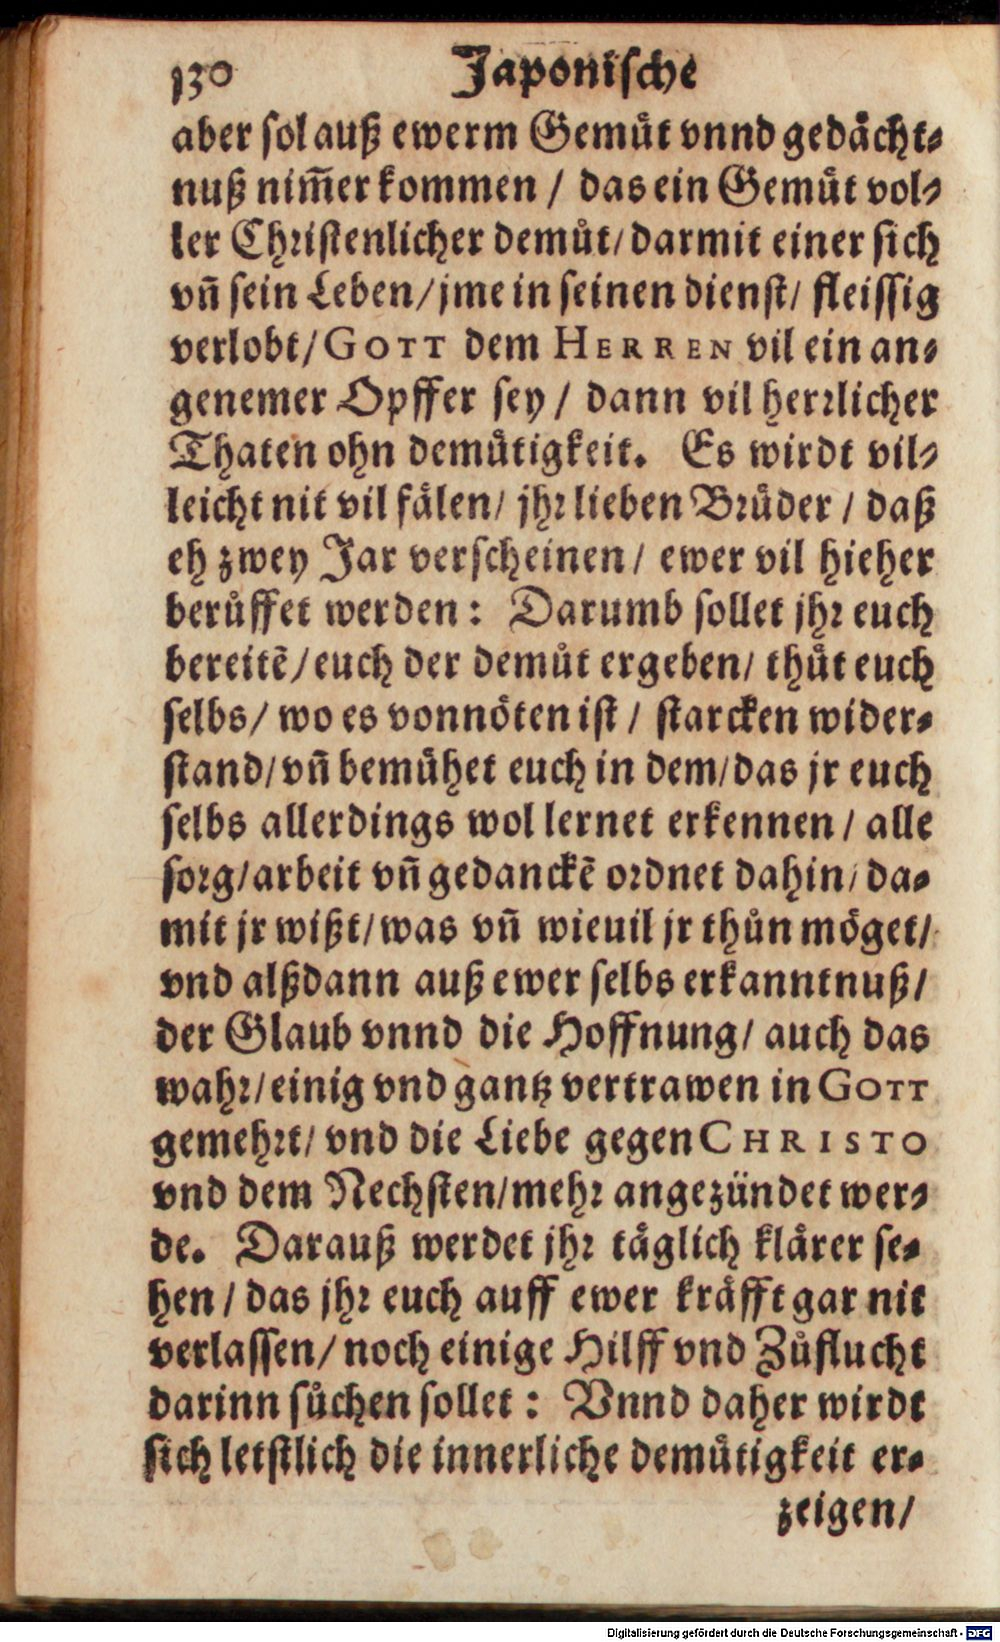 130 Japonische
aber sol auß ewerm Gemuͤt vnnd gedaͤcht-
nuß nim̅er kommen / das ein Gemuͤt vol-
ler Christenlicher demuͤt / darmit einer sich
vn̅ sein Leben / jme in seinen dienst / fleissig
verlobt / GOTT dem HERREN vil ein an-
genemer Opffer sey / dann vil herrlicher
Thaten ohn demuͤtigkeit. Es wirdt vil-
leicht nit vil faͤlen / jhr lieben Bruͤder / daß
eh zwey Jar verscheinen / ewer vil hieher
beruͤffet werden: Darumb sollet jhr euch
bereitẽ / euch der demuͤt ergeben / thuͤt euch
selbs / wo es vonnoͤten ist / starcken wider-
stand / vn̅ bemuͤhet euch in dem / das jr euch
selbs allerdings wol lernet erkennen / alle
sorg / arbeit vn̅ gedanckẽ ordnet dahin / da-
mit jr wißt / was vn̅ wieuil jr thuͦn moͤget /
vnd alßdann auß ewer selbs erkanntnuß /
der Glaub vnnd die Hoffnung / auch das
wahr / einig vnd gantz vertrawen in GOTT
gemehrt / vnd die Liebe gegen CHRISTO
vnd dem Nechsten / mehr angezündet wer-
de. Darauß werdet jhr taͤglich klaͤrer se-
hen / das jhr euch auff ewer kraͤfft gar nit
verlassen / noch einige Hilff vnd Zuͦflucht
darinn suͦchen sollet: Vnnd daher wirdt
sich letstlich die innerliche demuͤtigkeit er-
zeigen /
Digitalisierung gefördert durch die Deutsche Forschungsgemeinschaft - DFG